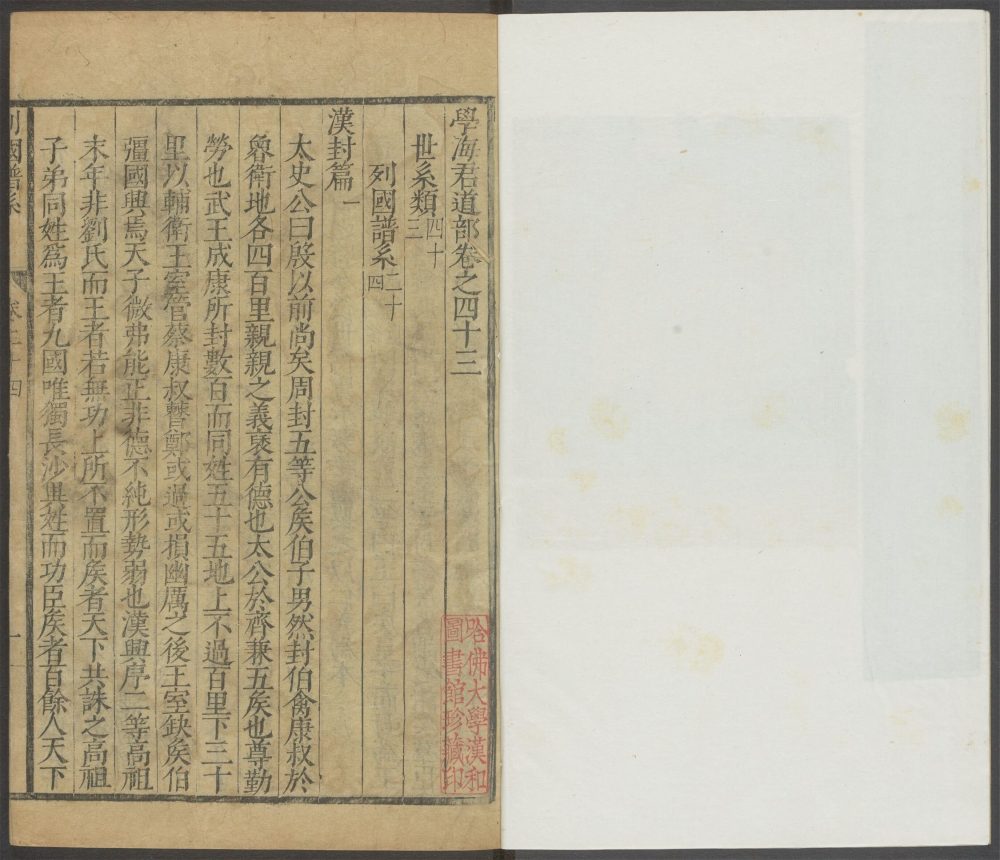 學海君道部卷之四十三
世系類四十三
列國譜系二十四
漢封篇一
太史公曰殷以前尚矣周封五等公矦伯子男然封伯禽康叔於
魯衛地各四百里親親之義裦有德也太公於齊兼五矦也尊勤
勞也武王成康所封數百而同姓五十五地上不過百里下三十
里以輔衛王室管蔡康叔曹鄭或過或損幽厲之後王室缺矦伯
彊國興焉天子微弗能正非德不純形勢弱也漢興序二等高祖
末年非劉氏而王者若無功上所不置而矦者天下共誅之高祖
子弟同姓爲王者九國唯獨長沙異姓而功臣矦者百餘人天下
列國譜系
卷二十四
一
哈佛大學漢和
圖書館珍藏印